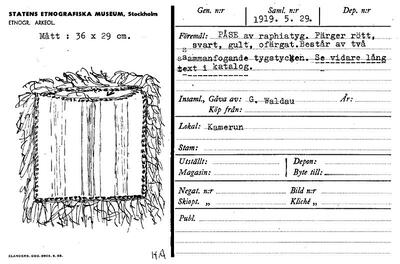 STATENS ETNOGRAFISKA MUSEUM, Stockholm
ETNOGR. ARKEOL.
Mått : 36 x 29 cm.
HA
Gen. n:r Saml. n:r Dep. n:r
1919. 5. 29.
Föremål: PÅSE av raphiatyg. Färger rött,
svart, gult, ofärgat. Består av två
sammanfogande tygstycken. Se vidare lång
text i katalog.
Insaml., Gåva av: G. Waldau År:
Köp från:
Lokal: Kamerun
Stam:
Utställt: Depon:
Magasin: Byte till:
Negat. n:r Bild n:r
Skiopt. „ Kliché „
Publ.